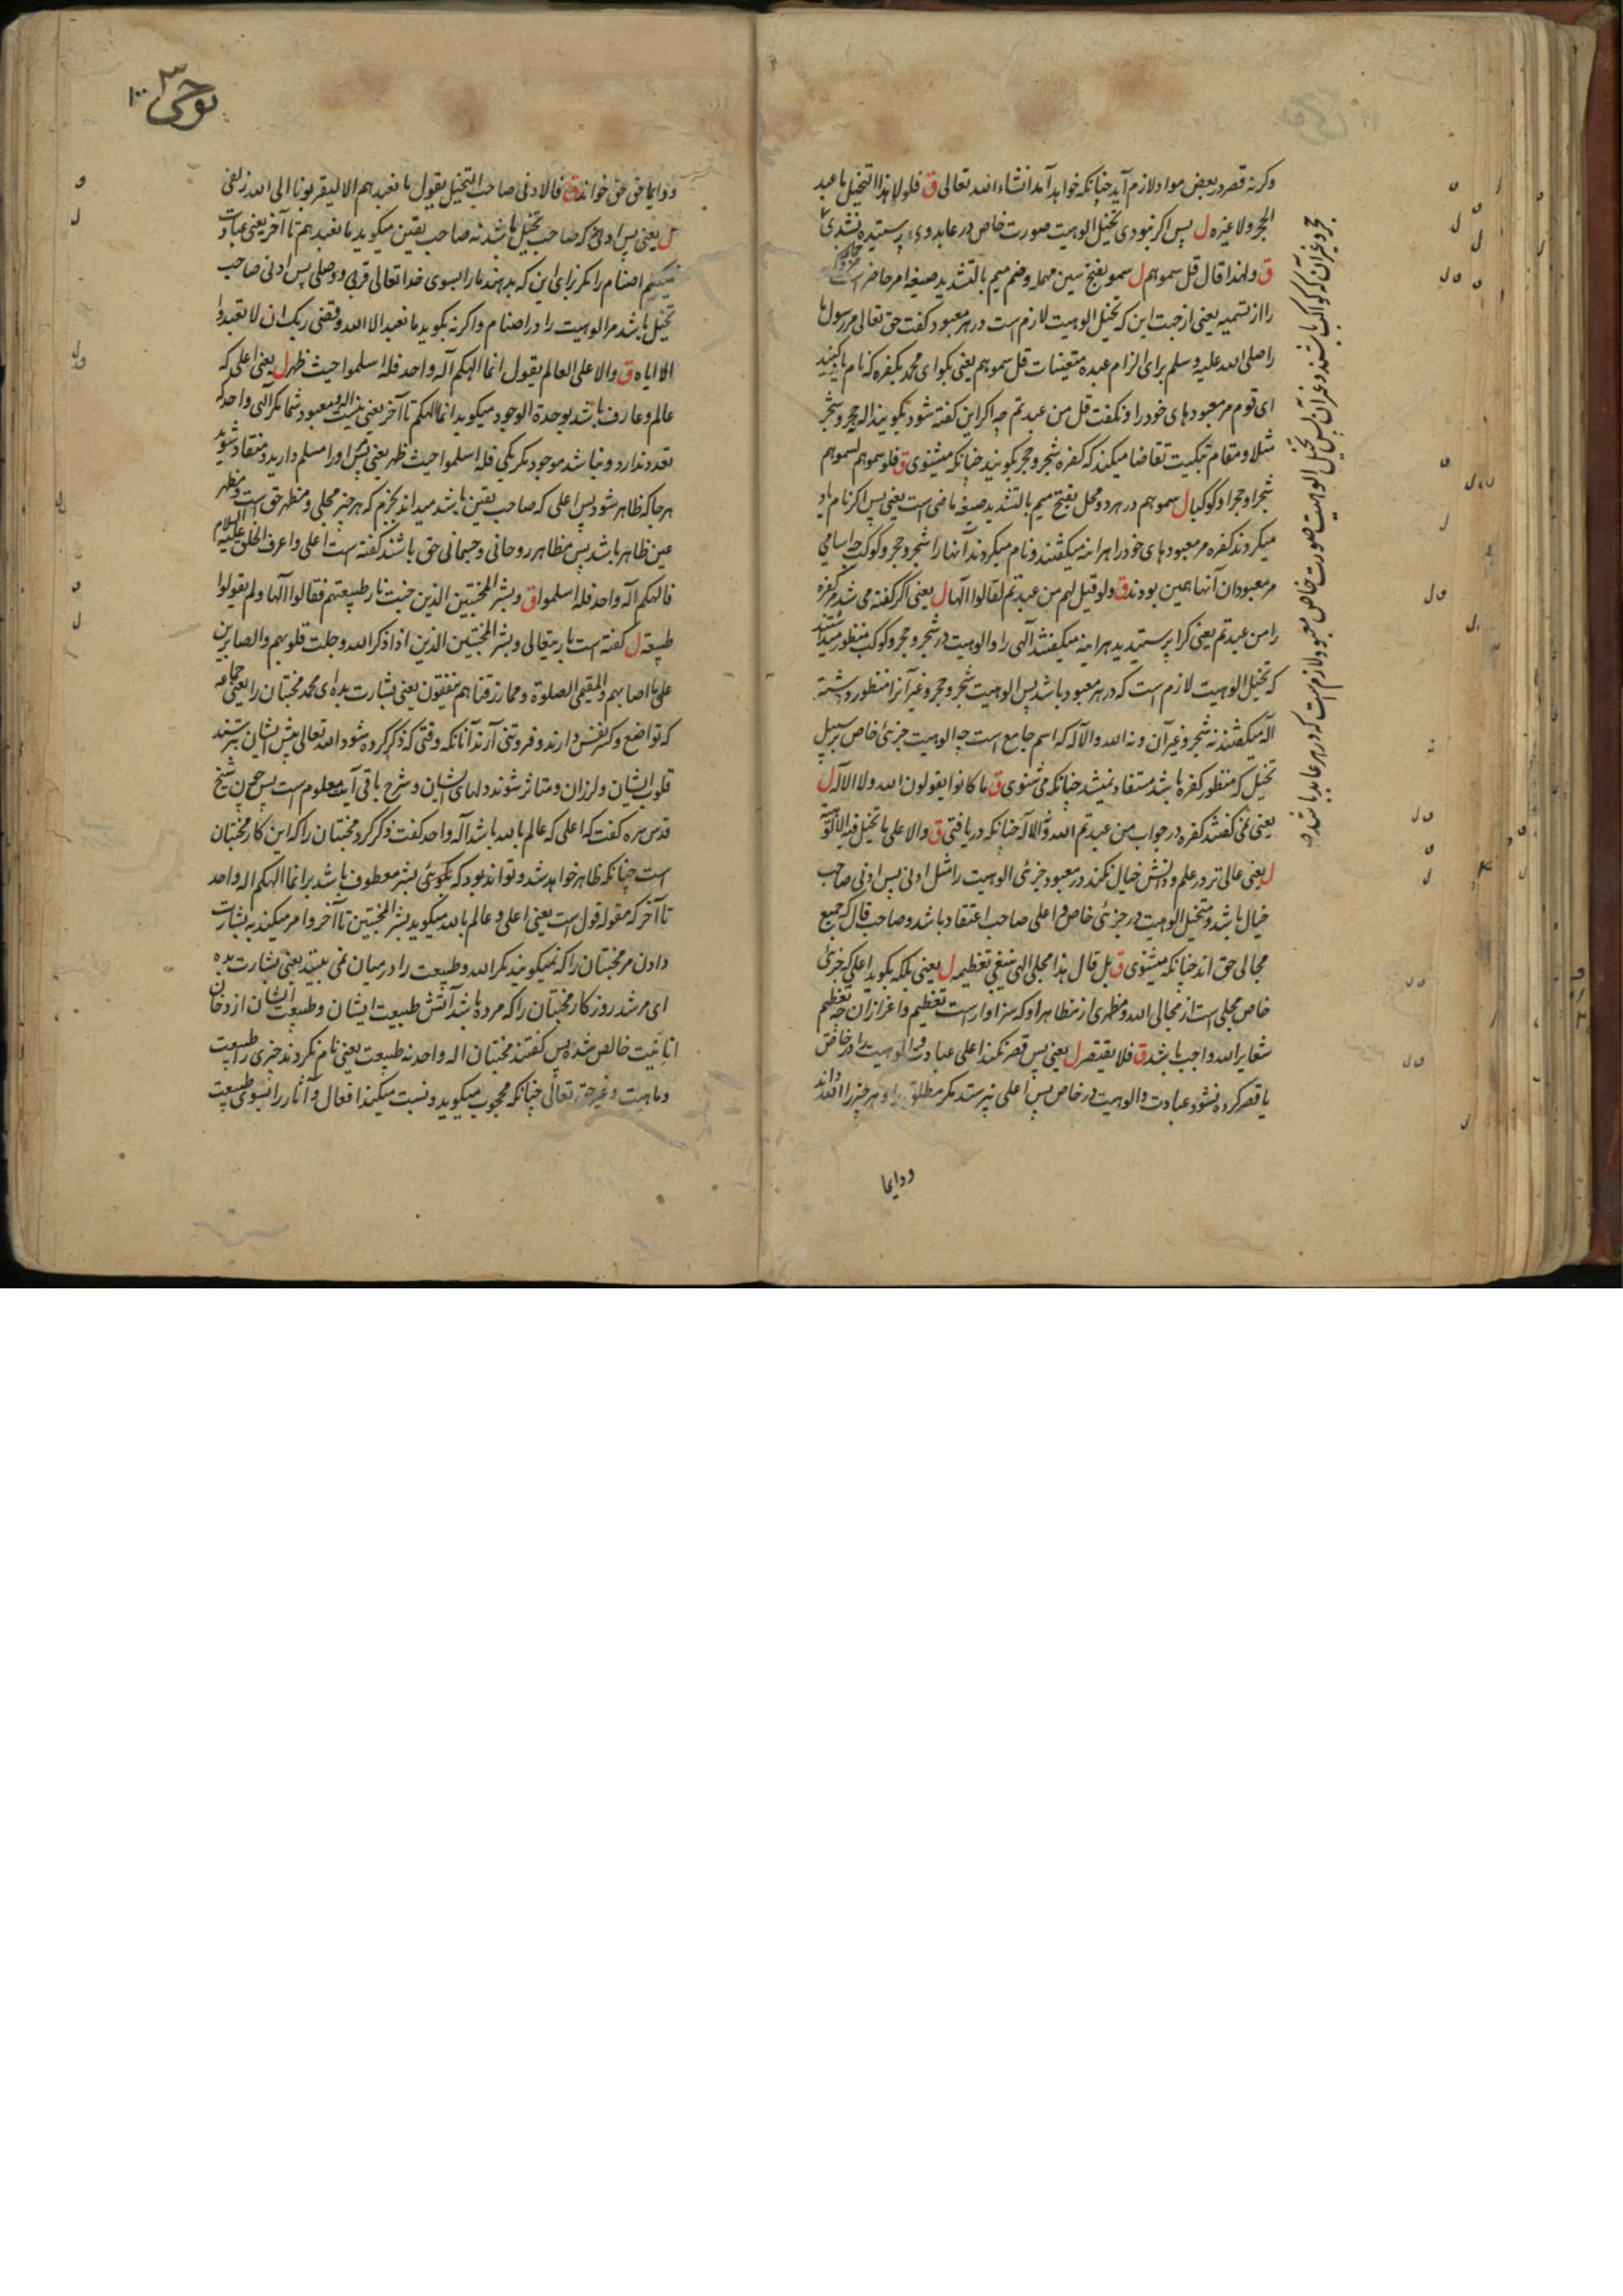 وکرنه قصر در بعض مواد لازم آید چنانکه خواهد آمد انشاء الله تعالی ق فلولا هذا التخیل ما عبد
الحجر ولا غیره ل پس اکر نبودی تخیل الوهیت صورت خاص در عابد وی پرستیده نشدی
ق ولهذا قال قل سموهم ل سمو بفتح سین مهمله وضم میم بالتشدید صیغه امر حاضر است
را از تسمیه یعنی از جهت این که تخیل الوهیت لازم است در هر معبود کفت حق تعالی مر رسول ما
را صلی الله علیه وسلم برای الزام عبده متعینات قل سموهم یعنی بکو ای محمد بکفره که نام کنید
ای قوم مر معبودهای خود را و نکفت قل من عبدتم چه اکر این کفته شود بکویند اله حجر و شجر
مثلا و مقام تبکیت تقاضا میکند که کفره شجر و حجر بکویند چنانکه میشنوی ق فلو سموهم لسموهم
شجرا وحجرا وکوکبا ل سموهم در هر دو محل بفتح میم بالتشدید صیغه ماضی است یعنی پس اکر نام یاد
میکردند کفره مر معبودهای خود را هراینه میکفتند و نام میکردند آنها را شجر و حجر و کوکب چه اسامی
مر معبودان آنها همین بودند ق ولو قیل لهم من عبدتم لقالوا الها ل یعنی اکر کفته می شد مر کفره
را من عبدتم یعنی کرا پرستیدید هراینه میکفتند آلهی را و الوهیت در شجر و حجر و کوکب منظور میداشتند
که تخیل الوهیت لازم است که در هر معبود باشد پس الوهیت شجر و حجر و غیر آنرا منظور داشته
اله میکفتند نه شجر و غیر آن و نه الله والاله که اسم جامع است چه الوهیت جزئی خاص بر سبیل
تخیل که منظور کفره باشد مستفاد نمیشد چنانکه می شنوی ق ما کانوا یقولون الله ولا الاله ل
یعنی نمی کفتند کفره در جواب من عبدتم الله و الاله چنانکه دریافتی ق والاعلی ما تخیل فیه الالوهة
ل یعنی عالی تر در علم و دانش خیال نکند در معبود جزئی الوهیت را مثل ادنی پس ادنی صاحب
خیال باشد و متخیل الوهیت در جزئی خاص و اعلی صاحب اعتقاد باشد و صاحب قال که جمیع
مجالی حق اند چنانکه میشنوی ق بل قال هذا مجلی الهی ینبغی تعظیمه ل یعنی بلکه بکوید اعلی که جزئی
خاص مجلی است از مجالی الله و مظهری از مظاهر او که سزاوار است تعظیم و اعزاز آن چه تعظیم
شعایر الله واجب باشد ق فلا یقتصر ل یعنی پس قصر نکند اعلی عبادت و الوهیت را در خاص
یا قصر کرده نشود عبادت و الوهیت در خاص پس اعلی نپرستد مکر مطلق را و هر چیز را
ودایما
حجر و غیر آن که کواکب باشند و غیر آن پس تخیل الوهیت صورت خاص معبود لازم است که در هر عابد باشد
نوحی
۱۰۰
ودایما حق حق خواند ق فالادنی صاحب التخیل یقول ما نعبدهم الا لیقربونا الی الله زلفی
ل یعنی پس ادنی که صاحب تخیل باشد نه صاحب یقین میکوید ما نعبدهم تا آخر یعنی عبادت
نمیکنیم اصنام را مکر برای این که بدهند ما را بسوی خدا تعالی قربی و وصلی پس ادنی صاحب
تخیل باشد مر الوهیت را در اصنام واکر نه بکوید ما نعبد الا الله وقضی ربک ان لا تعبدوا
الا ایاه ق والاعلی العالم یقول انما الهکم اله واحد فله اسلموا حیث ظهر ل یعنی اعلی که
عالم و عارف باشد بوحدة الوجود میکوید انما الهکم تا آخر یعنی نیست اله و معبود شما مکر الهی واحد که
تعدد ندارد و نباشد موجود مکر یکی فله اسلموا حیث ظهر یعنی پس او را مسلم دارید و منقاد شوید
هر جا که ظاهر شود پس اعلی که صاحب یقین باشد میداند بجزم که هر چیز مجلی و مظهر حق است و مظهر
عین ظاهر باشد پس مظاهر روحانی و جسمانی حق باشند کفته است اعلی و اعرف الخلق علیه السلام
فالهکم اله واحد فله اسلموا ق وبشر المخبتین الذین خبت نار طبیعتهم فقالوا الها ولم یقولوا
طبیعة ل کفته است باریتعالی وبشر المخبتین الذین اذا ذکر الله وجلت قلوبهم والصابرین
علی ما اصابهم والمقیمی الصلوة ومما رزقناهم ینفقون یعنی بشارت بده ای محمد مخبتان را یعنی جماعه
که تواضع و کسر نفس دارند و فروتنی آرند آنانکه وقتی که ذکر کرده شود الله تعالی پیش ایشان بترسند
قلوب ایشان و لرزان و متاثر شوند دلهای ایشان و شرح باقی آیت معلوم است پس چون شیخ
قدس سره کفت که اعلی که عالم بالله باشد اله واحد کفت ذکر کرد مخبتان را که این کار مخبتان
است چنانکه ظاهر خواهد شد و تواند بود که بکوئی بشر معطوف باشد بر انما الهکم اله واحد
تا آخر که مقوله قول است یعنی اعلی و عالم بالله میکوید بشر المخبتین تا آخر و امر میکند به بشارت
دادن مر مخبتان را که نمیکویند مکر الله و طبیعت را در میان نمی بینند یعنی بشارت بده
ای مرشد روزکار مخبتان را که مرده باشد آتش طبیعت ایشان و طبیعت ایشان از دخان
انانیت خالص شده پس کفتند مخبتان اله واحد نه طبیعت یعنی نام نکردند چیزی را طبیعت
و ماهیت و غیر حق تعالی چنانکه محجوب میکوید و نسبت میکند افعال و آثار را بسوی طبیعت